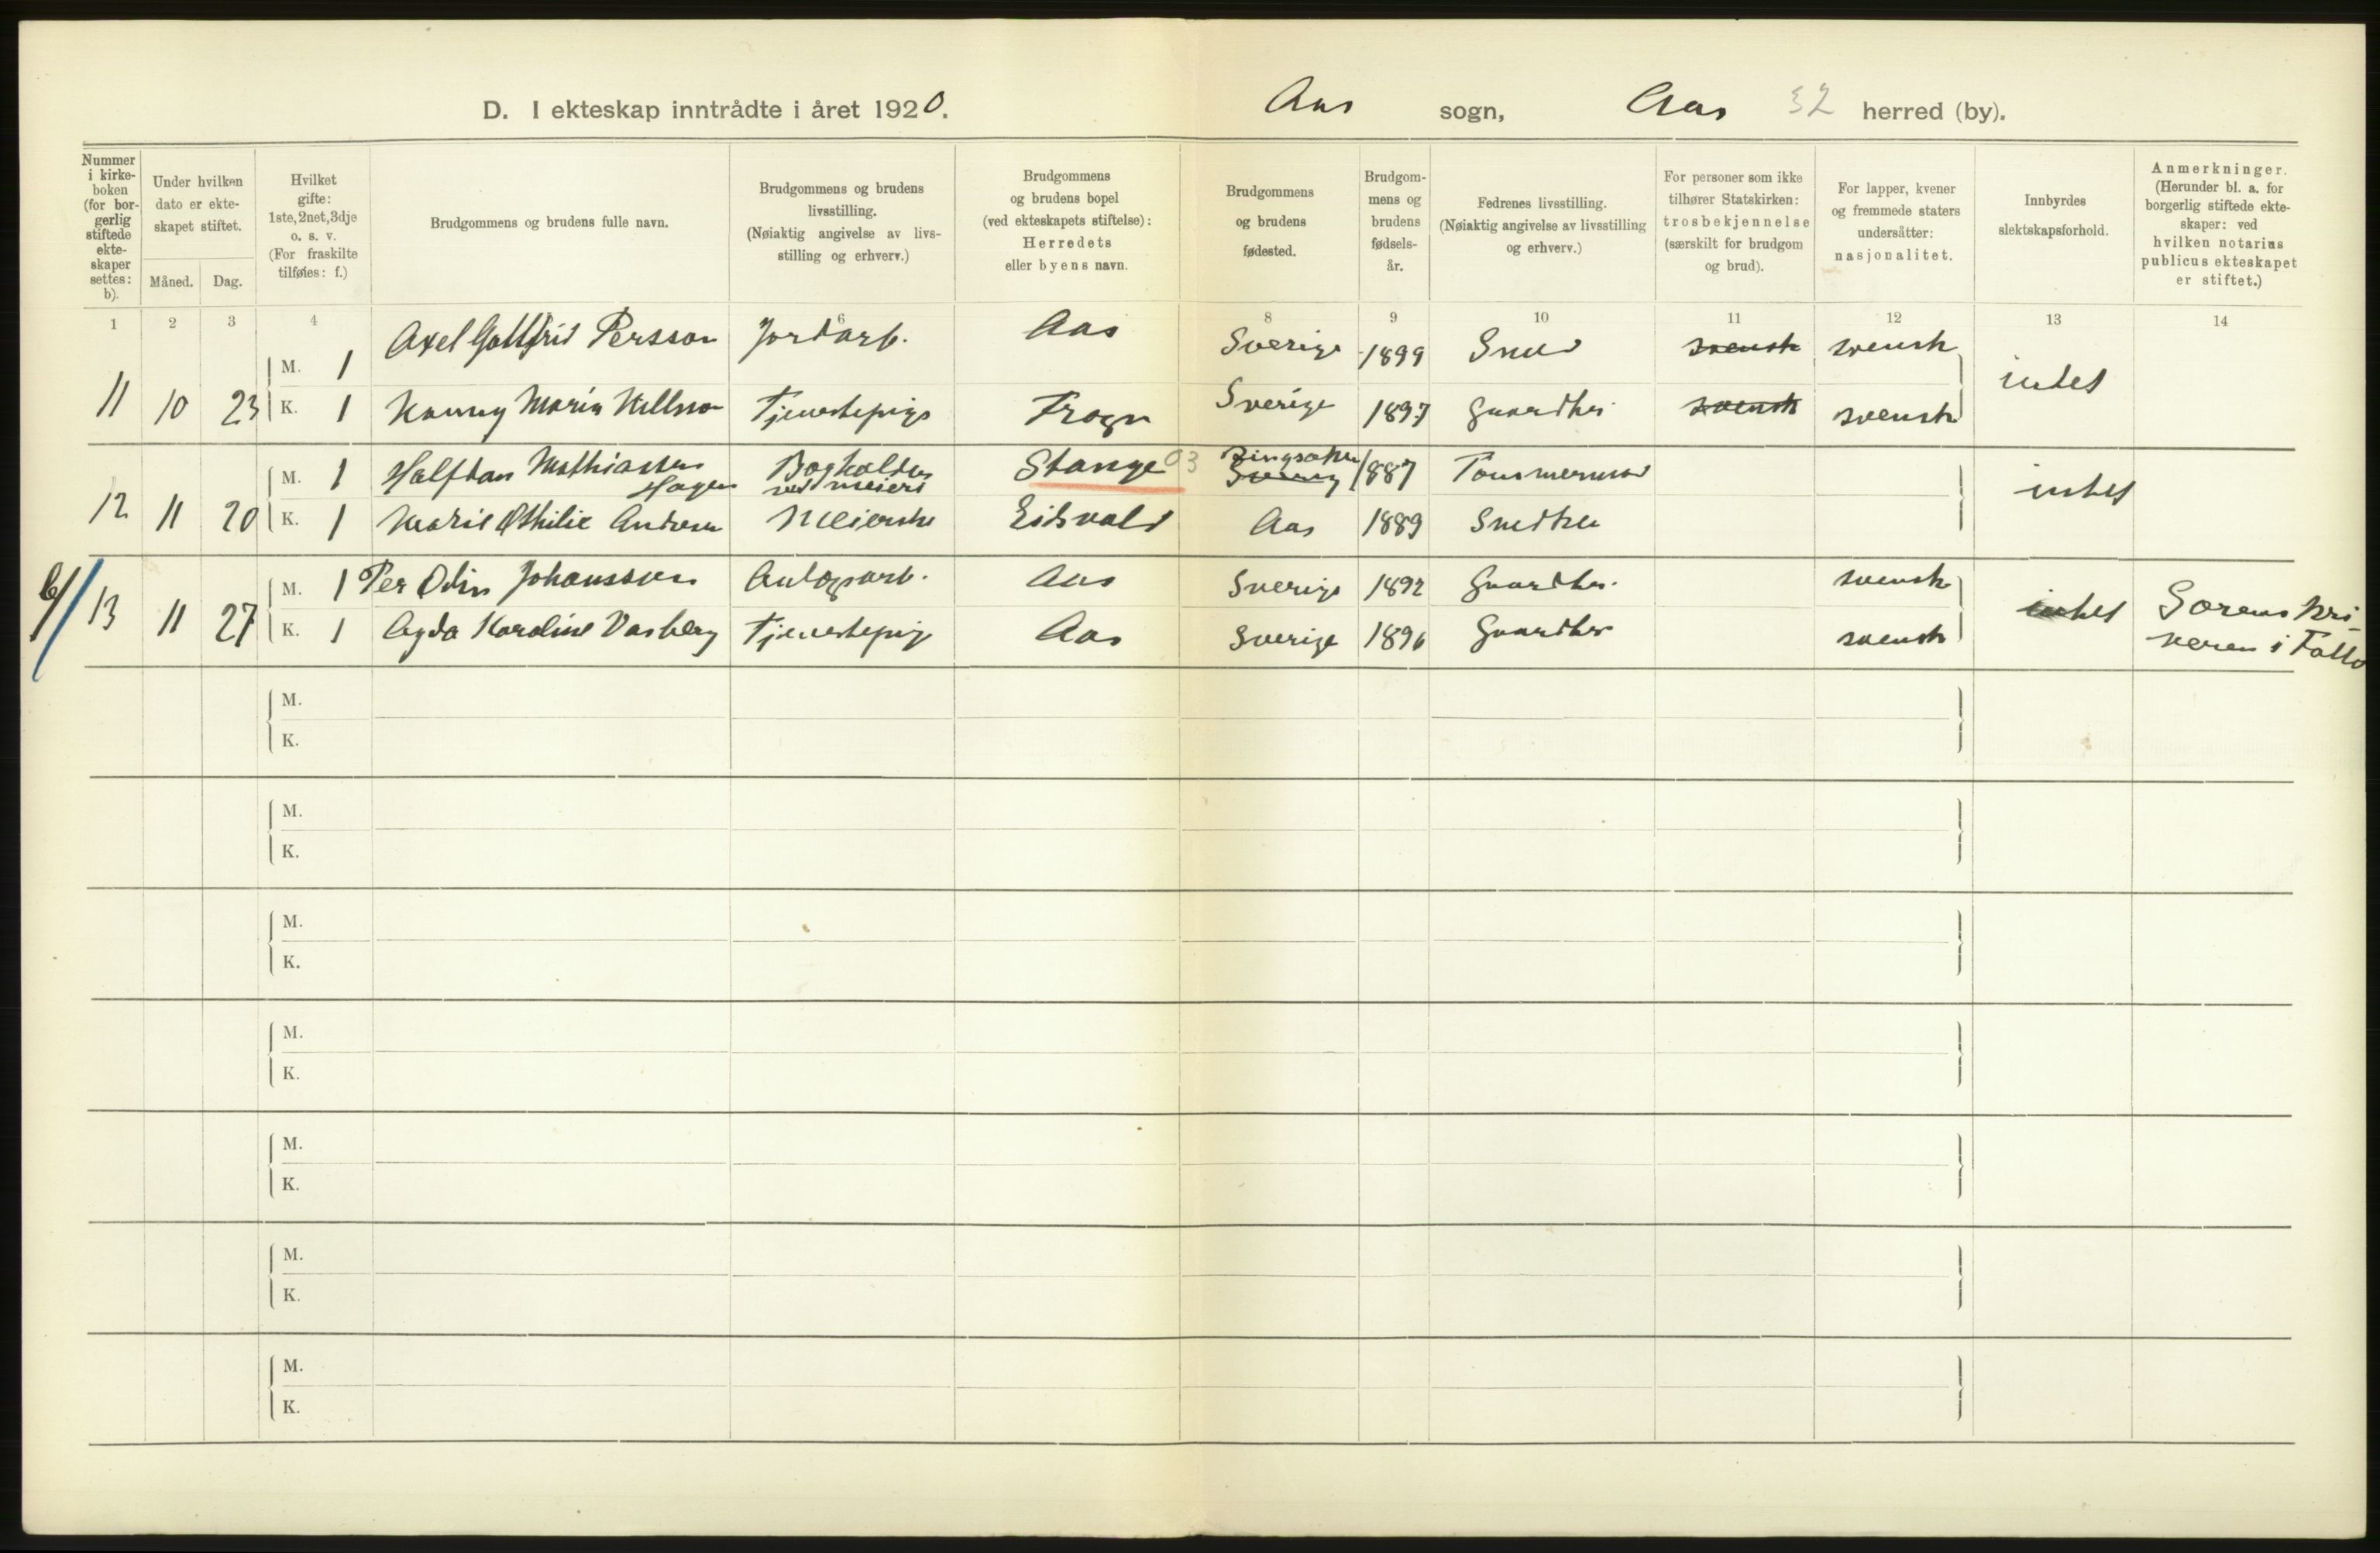 D. I ekteskap inntrådte i året 1920.
Aas sogn, Aas 32 herred (by).
Nummer
i kirke-
boken
(for bor-
gerlig
stiftede
ekte-
skaper
settes:
b).
Under hvilken
dato er ekte-
skapet stiftet.
Måned. Dag.
Hvilket
gifte:
1ste, 2net, 3dje
o. s. v.
(For fraskilte
tilføies: f.)
Brudgommens og brudens fulle navn.
Brudgommens og brudens
livsstilling.
(Nøiaktig angivelse av livs-
stilling og erhverv.)
Brudgommens
og brudens bopel
(ved ekteskapets stiftelse):
Herredets
eller byens navn.
Brudgommens
og brudens
fødested.
Brudgom-
mens og
brudens
fødsels-
år.
Fedrenes livsstilling.
(Nøiaktig angivelse av livsstilling
og erhverv.)
For personer som ikke
tilhører Statskirken:
trosbekjennelse
(særskilt for brudgom
og brud).
For lapper, kvener
og fremmede staters
undersåtter:
nasjonalitet.
Innbyrdes
slektskapsforhold.
Anmerkninger.
(Herunder bl. a. for
borgerlig stiftede ekte-
skaper: ved
hvilken notarius
publicus ekteskapet
er stiftet.)
1 2 3 4 6 8 9 10 11 12 13 14
M. 1 Axel Gottfrid Persson Jordarb. Aas Sverige 1899 Smed svensk svensk
11 10 23 K. 1 Maria Tjenestepige Frogn Sverige 1897 Gaardbr. svensk svensk intet
M. 1 Halfdan Mathiassen Hagen Bogholder ved meieri Stange 03 Ringsaker 1887 Tømmermand
12 11 20 K. 1 Marie Othilie Andersen Meierske Eidsvold Aas 1889 Snedker intet
M. 1 Per Odin Johanssen Anlægsarb. Aas Sverige 1892 Gaardbr. svensk
b/ 13 11 27 K. 1 Agda Karoline Vasberg Tjenestepige Aas Sverige 1896 Gaardbr svensk intet Sorenskri-
veren i Follo
M.
K.
M.
K.
M.
K.
M.
K.
M.
K.
M.
K.
M.
K.